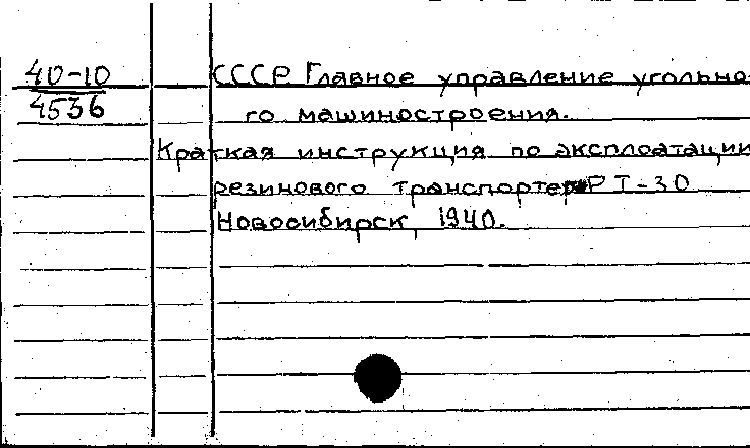 40-10
4536
СССР Главное управление угольно
го машиностроения.
Краткая инструкция по эксплоатации
резинового транспортера РТ-30
Новосибирск, 1940.